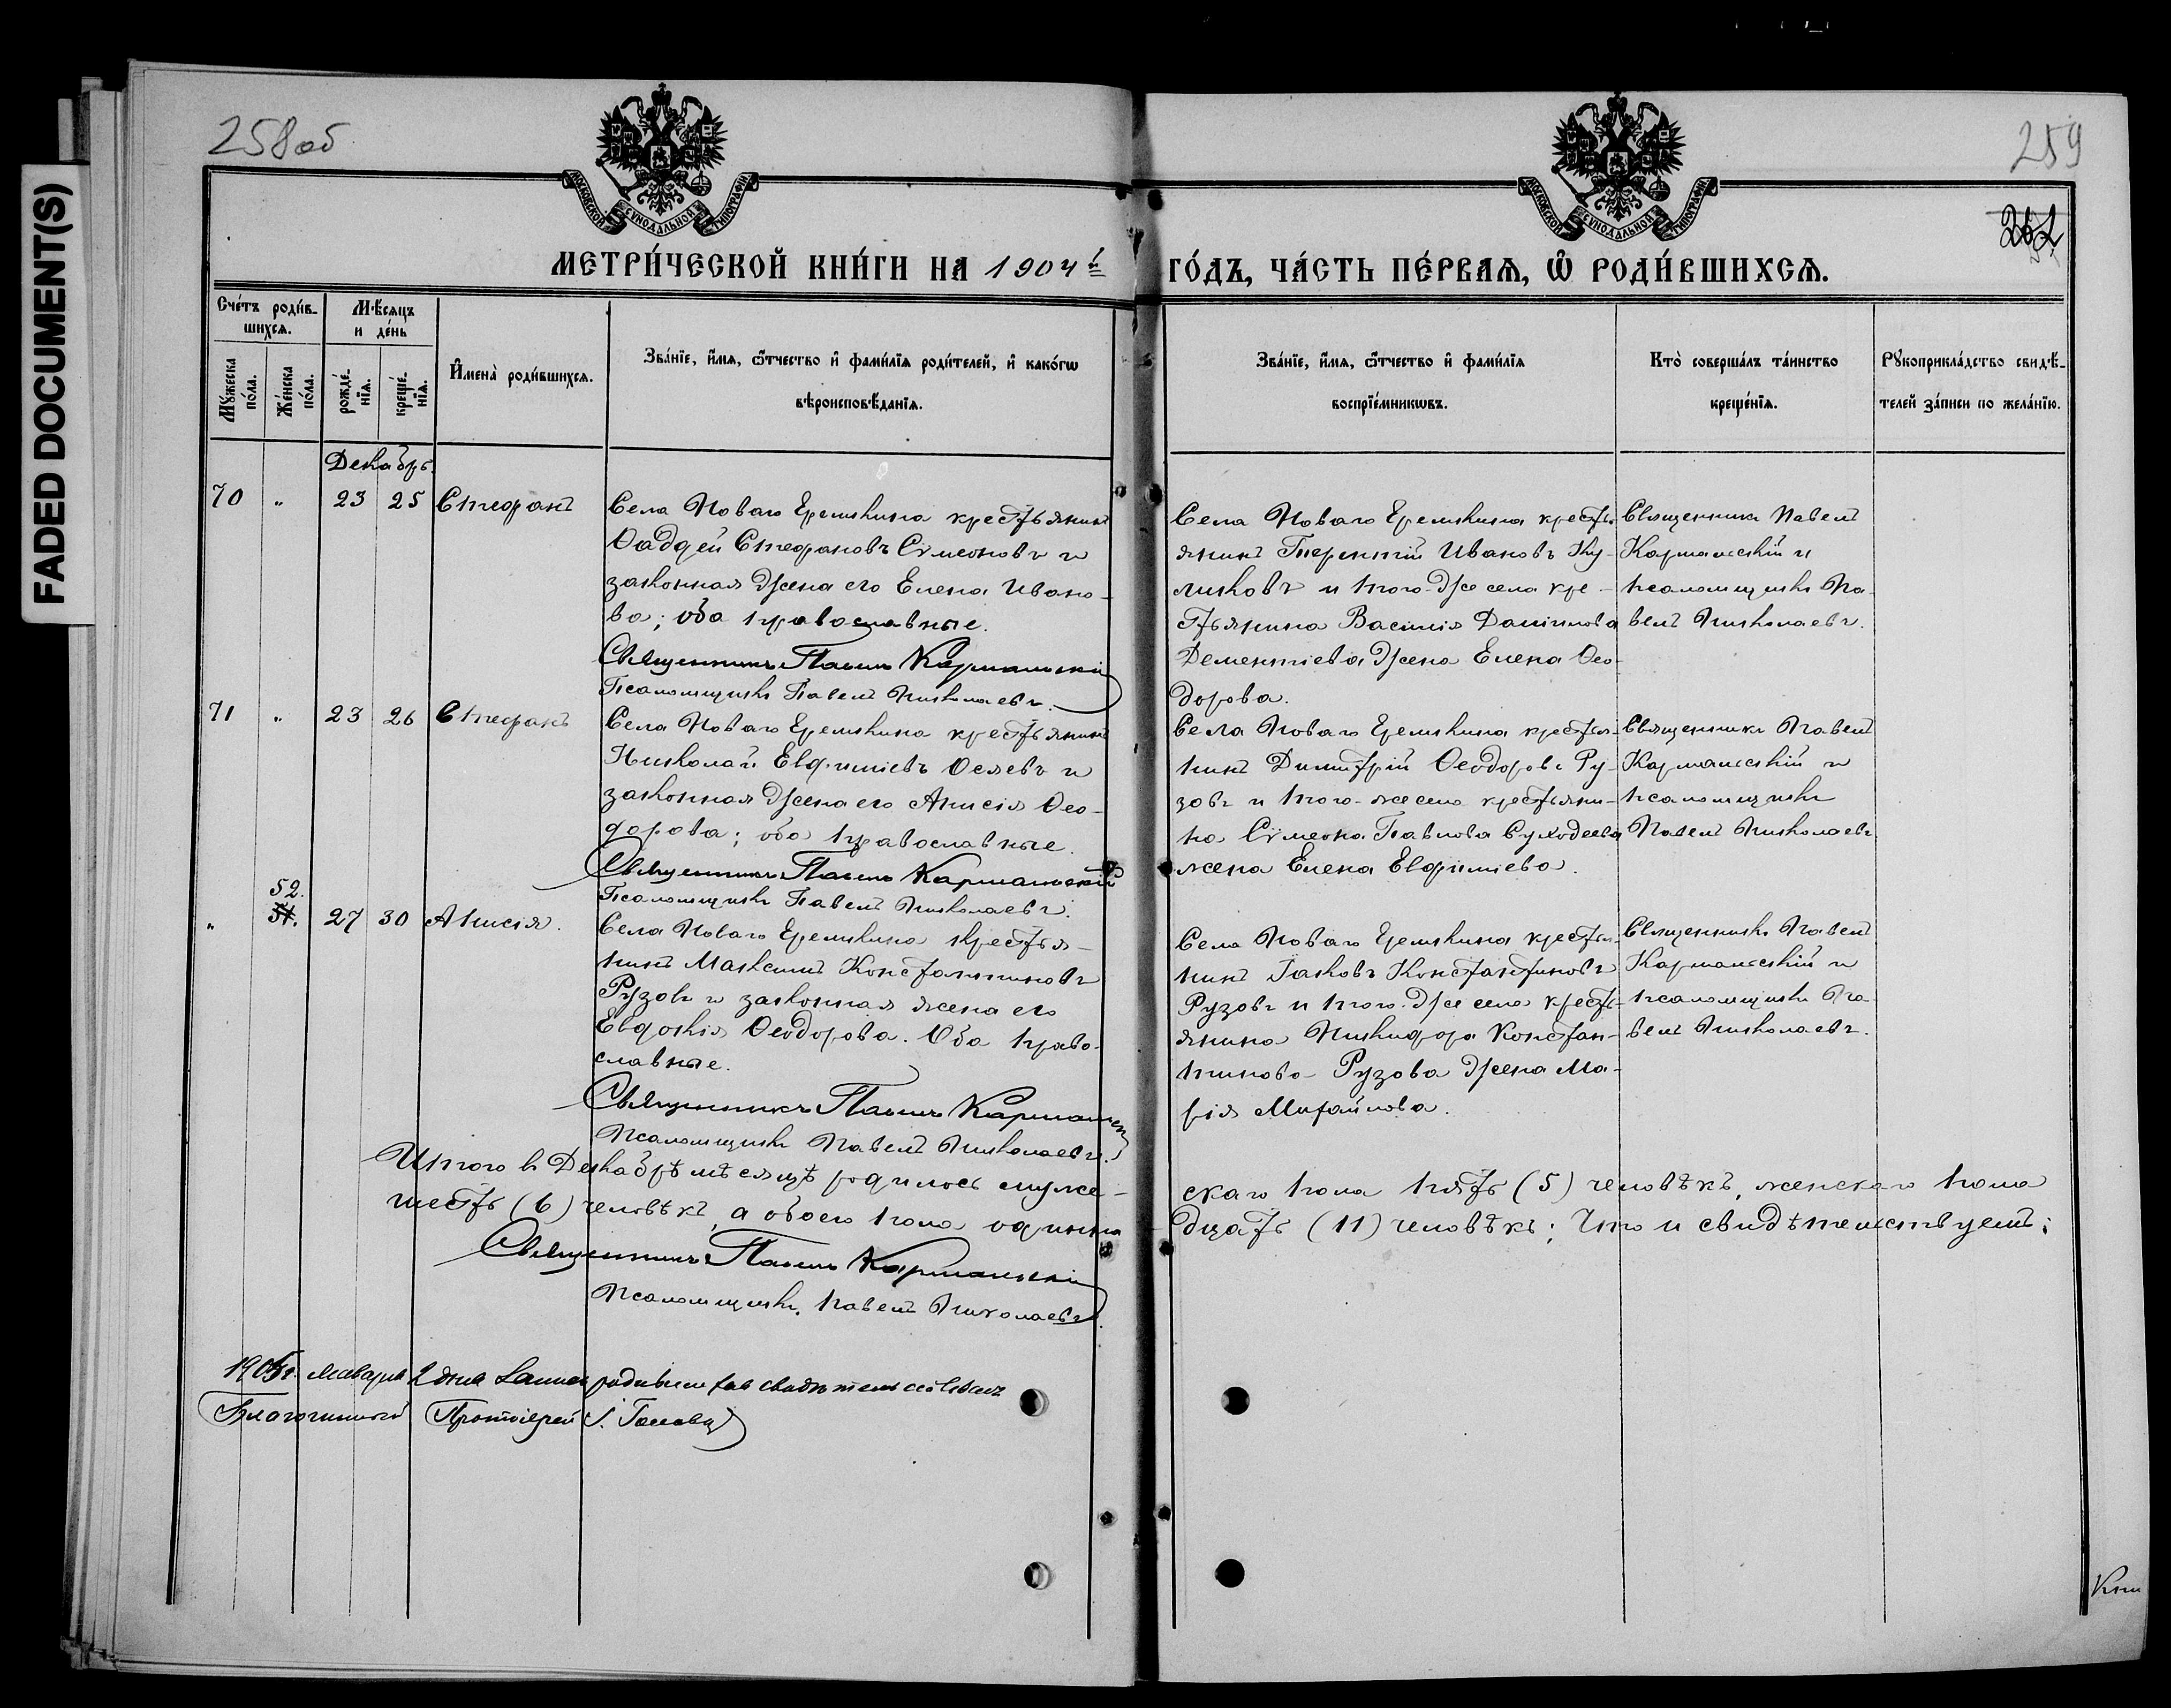 FADED DOCUMENT(S)
258об
259
МОСКОВСКОЙ СУНОДАЛЬНОЙ ТИПОГРАФІИ
МОСКОВСКОЙ СУНОДАЛЬНОЙ ТИПОГРАФІИ
МЕТРИ́ЧЕСКОЙ КНИ́ГИ НА 1904й ГО́ДЪ, ЧА́СТЬ ПЕ́РВАѦ, Ѡ РОДИ́ВШИХСѦ.
Сче́тъ роди́в-
шихсѧ.
Мꙋ́жеска по́ла.
Же́нска по́ла.
Мѣ́сѧцъ
и де́нь
рожде́-нїѧ.
креще́-нїѧ.
И҆мена̀ роди́вшихсѧ.
Зва́нїе, и҆́мѧ, ѻ҆́тчество и҆ фами́лїѧ роди́телей, и҆ како́гѡ
вѣроисповѣ́данїѧ.
Зва́нїе, и҆́мѧ, ѻ҆́тчество и҆ фами́лїѧ
воспрїе́мникѡвъ.
Кто̀ соверша́лъ та́инство
креще́нїѧ.
Рꙋкоприкла́дство свидѣ́-
телей за́писи по жела́нїю.
Декабрь.
70 " 23 25 Стефанъ
Села Новаго Еремкина крестьянинъ
Ѳаддей Стефановъ Сѵмеоновъ и
законная жена его Елена Ивано-
ва; оба православные.
Священникъ Павелъ Кармальскій
Псаломщикъ Павелъ Николаевъ.
Села Новаго Еремкина кресть-
янинъ Терентій Ивановъ Ку-
ликовъ и того-же села кре-
стьянина Василія Даніилова
Дементіева жена Елена Ѳео-
дорова.
Священникъ Павелъ
Кармальскій и
псаломщикъ Па-
велъ Николаевъ.
71 " 23 26 Стефанъ
Села Новаго Еремкина крестьянинъ
Николай Евфиміевъ Осяевъ и
законная жена его Анисія Ѳео-
дорова; оба православные.
Священникъ Павелъ Кармальскій
Псаломщикъ Павелъ Николаевъ.
Села Новаго Еремкина крестья-
нинъ Димитрій Ѳеодоровъ Ру-
зовъ и того-же села крестьяни-
на Сѵмеона Павлова Суходеева
жена Елена Евфиміева.
Священникъ Павелъ
Кармальскій и
псаломщикъ
Павелъ Николаевъ
52.
" 51. 27 30 Анисія.
Села Новаго Еремкина крестья-
нинъ Максимъ Константиновъ
Рузовъ и законная жена его
Евдокія Ѳеодорова. Оба право-
славные.
Священникъ Павелъ Кармальск
Псаломщикъ Павелъ Николаевъ.
Села Новаго Еремкина крестья-
нинъ Іаковъ Константиновъ
Рузовъ и того-же села кресть-
янина Никифора Констан-
тинова Рузова жена Ма-
рія Михайлова.
Священникъ Павелъ
Кармальскій и
псаломщикъ Па-
велъ Николаевъ.
Итого въ Декабрѣ мѣсяцѣ родилось муже-скаго пола пять (5) человѣкъ, женскаго пола
шесть (6) человѣкъ, а обоего пола одинна дцать (11) человѣкъ; Что и свидѣтельствуемъ:
Священникъ Павелъ Кармальскій
Псаломщикъ, Павелъ Николаевъ.
1905 г. января 2 дня
Благочинный Протоіерей І.
Кни